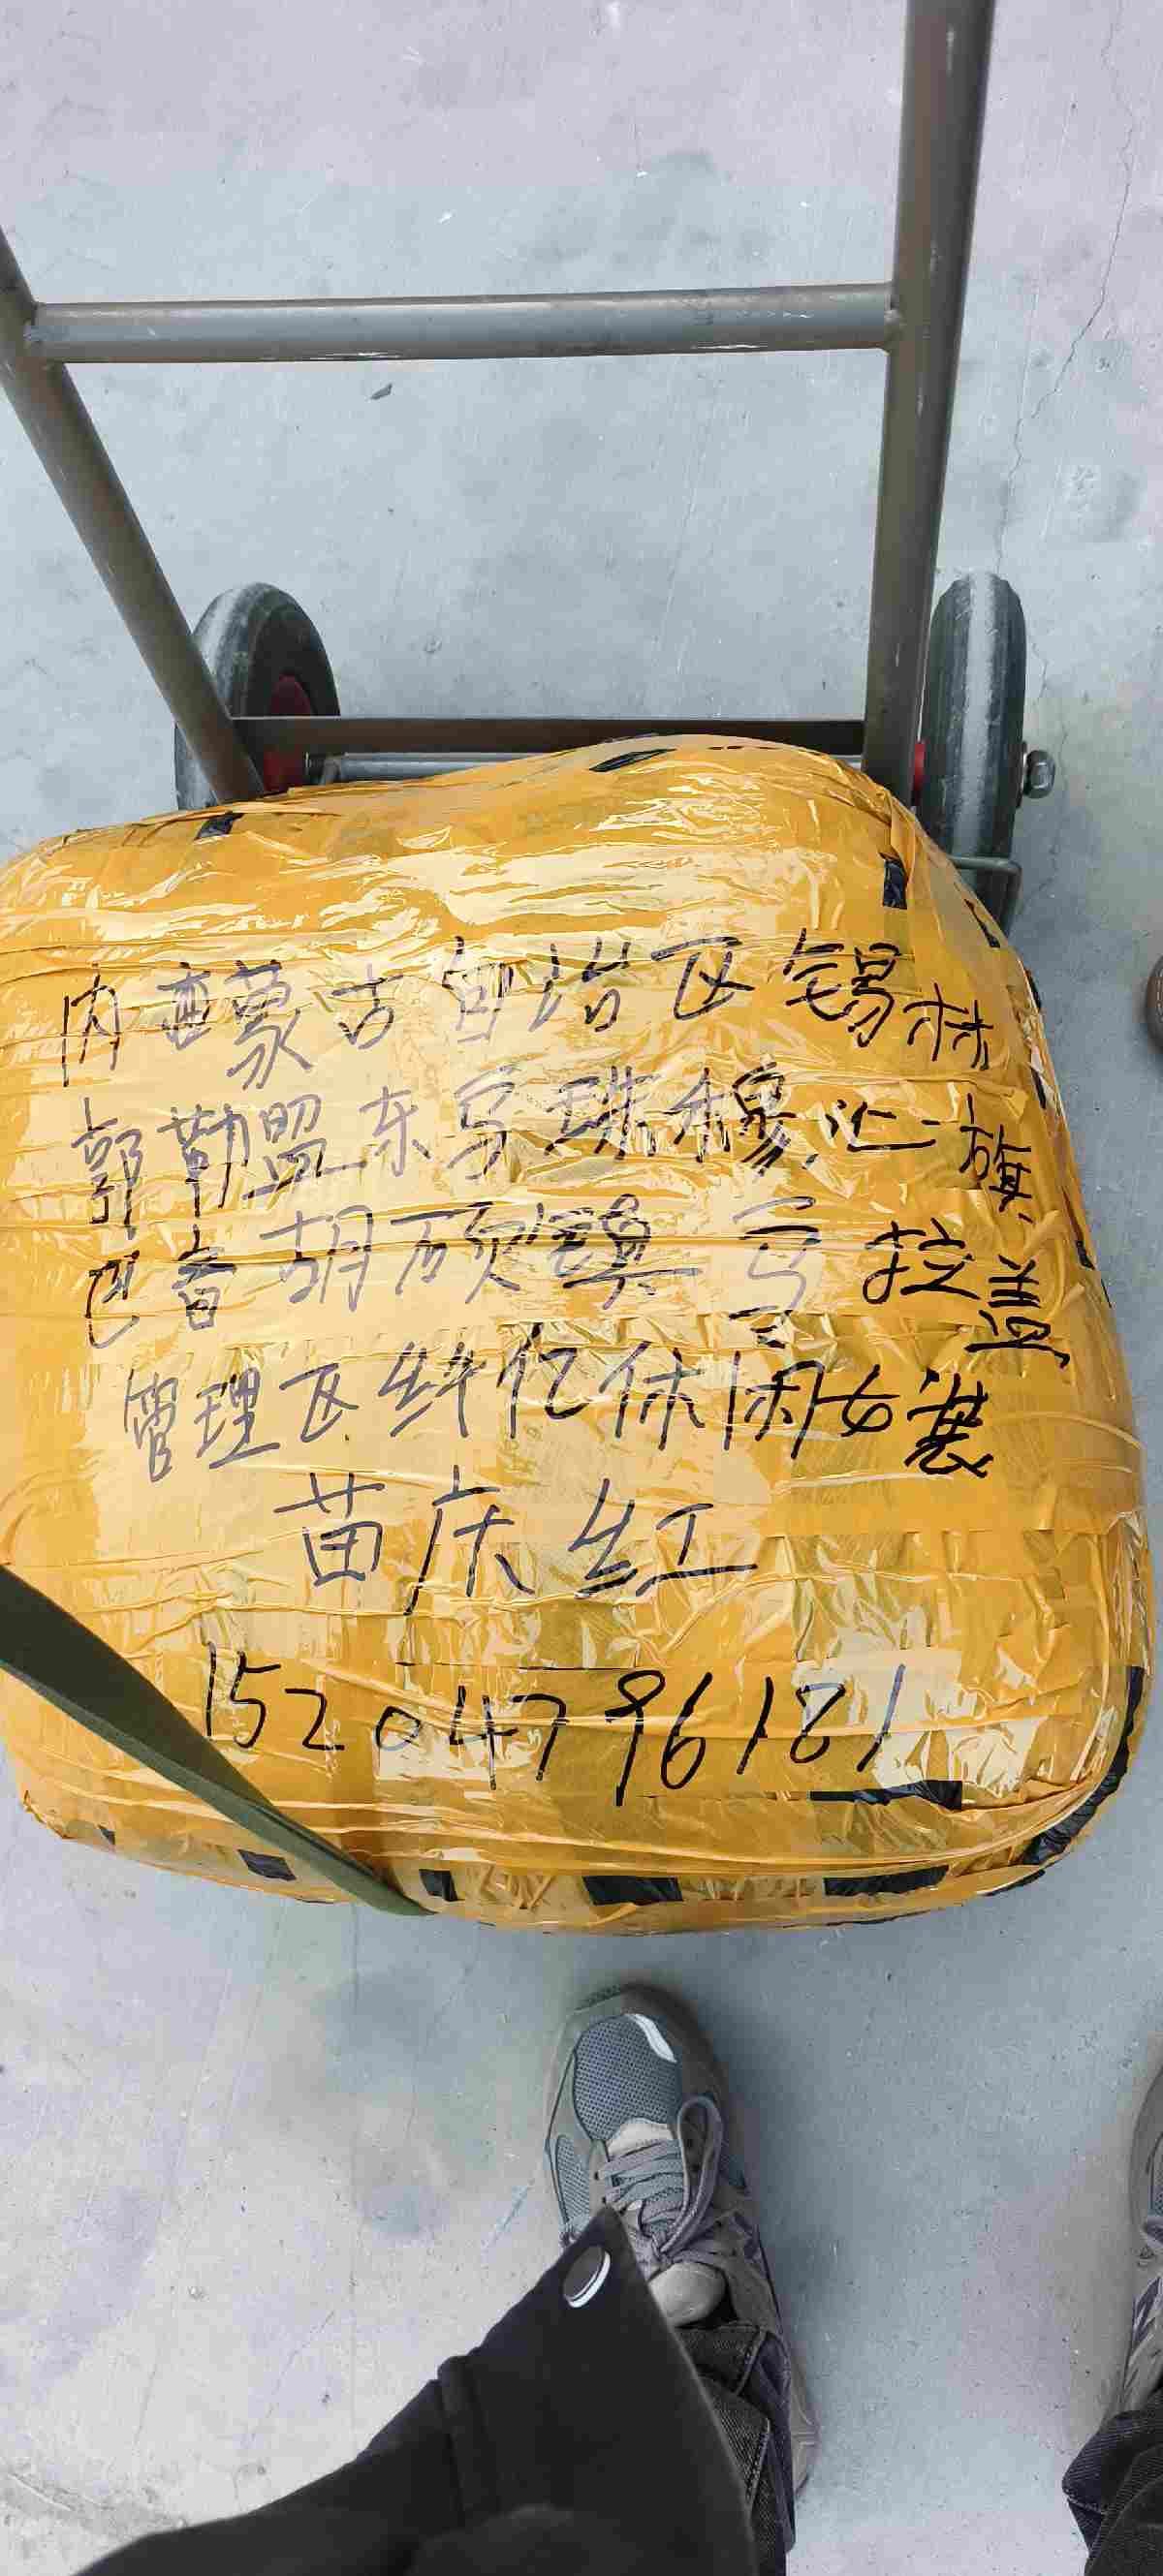 内蒙古自治区锡林
郭勒盟东乌珠穆沁旗
巴音胡硕镇乌拉盖
管理区纤亿休闲女装
苗庆红
15204796181